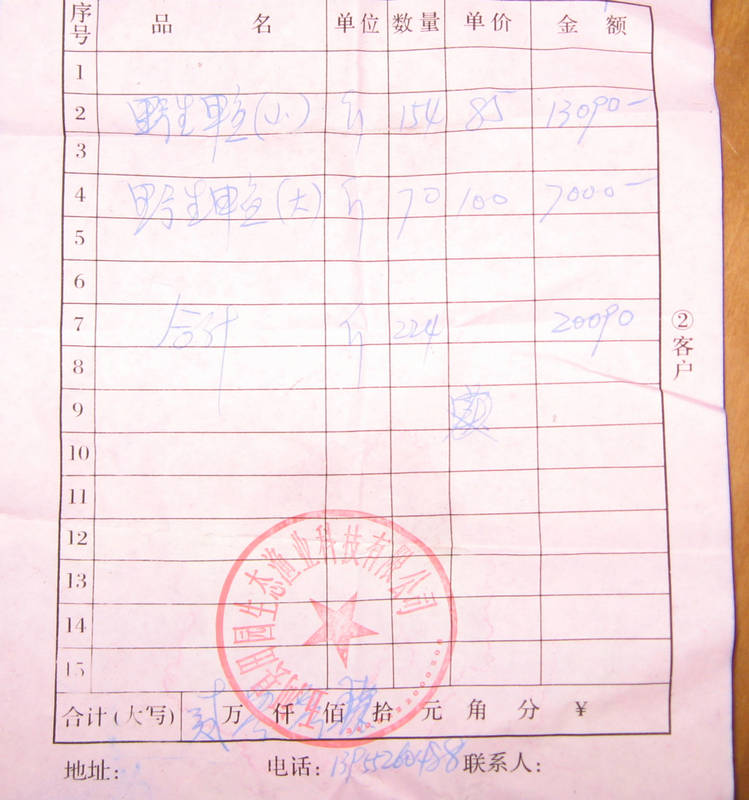 序号 品名 单位 数量 单价 金额
1
2 野生黾(小) 斤 154 85 13090-
3
4 野生黾(大) 斤 70 100 7000-
5
6
7 合计 斤 224 20090
8
9
10
11
12
13
14
15
田园生态渔业科技有限公司
合计(大写) 贰万仟佰拾元角分 ¥
地址: 电话: 联系人:
②客户